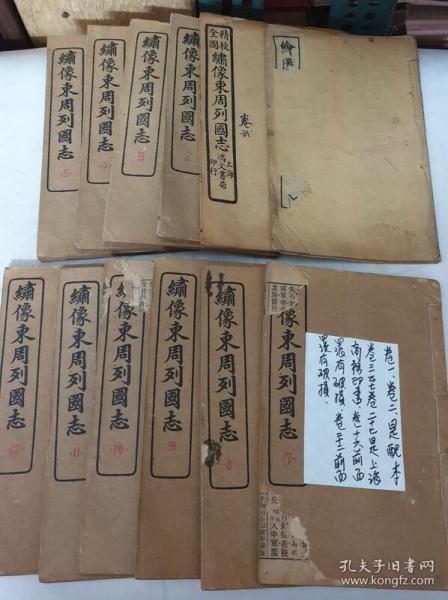 繪圖
精校
全圖
繡像東周列國志
上海
鴻文書局
印行
卷弍
繡像東周列國志
2
繡像東周列國志
3
繡像東周列國志
4
繡像東周列國志
5
卷一、卷二、是配本
卷三至卷二十七是上海
商務印書
卷十六前面
還有破損
卷二十二前面
還有破損.
像東周列國志
7
繡像東周列國志
8
繡像東周列國志
9
像東周列國志
10
繡像東周列國志
11
繡像東周列國志
12
孔夫子旧书网
www.kongfz.com